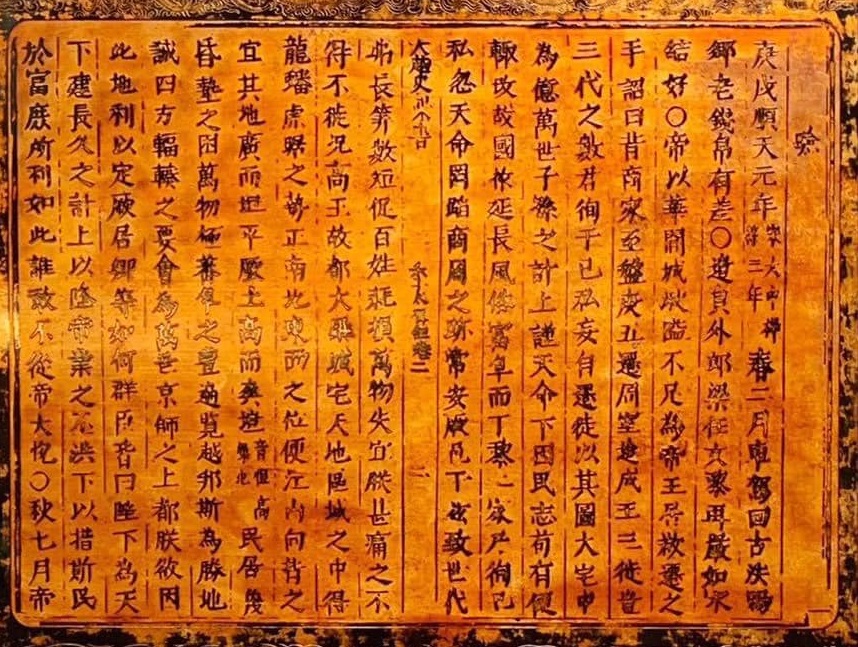 驗
庚戌順天元年宋大中祥符三年春二月車駕回古法賜
鄉老錢帛有差○遣員外郎梁任文黎再嚴如宋
結好○帝以華閭城湫隘不足為帝王居欲遷之
手詔曰昔商家至盤庚五遷周室迨成王三徙豈
三代之數君徇于己私妄自遷徙以其圖大宅中
為億萬世子孫之計上謹天命下因民志苟有便
輒改故國祚延長風俗富阜而丁黎二家乃徇己
私忽天命罔蹈商周之跡常安厥邑于茲致世代
大越史記全書 本紀卷二 二
弗長算數短促百姓耗損萬物失宜朕甚痛之不
得不徙況高王故都大羅城宅天地區域之中得
龍蟠虎踞之勢正南北東西之位便江山向背之
宜其地廣而坦平厥土高而爽塏音愷高燥地民居蔑
昏墊之困萬物極蕃阜之豐遍覽越邦斯為勝地
誠四方輻輳之要會為萬世京師之上都朕欲因
此地利以定厥居卿等如何群臣皆曰陛下為天
下建長久之計上以隆帝業之丕洪下以措斯民
於富庶所利如此誰敢不從帝大悅○秋七月帝